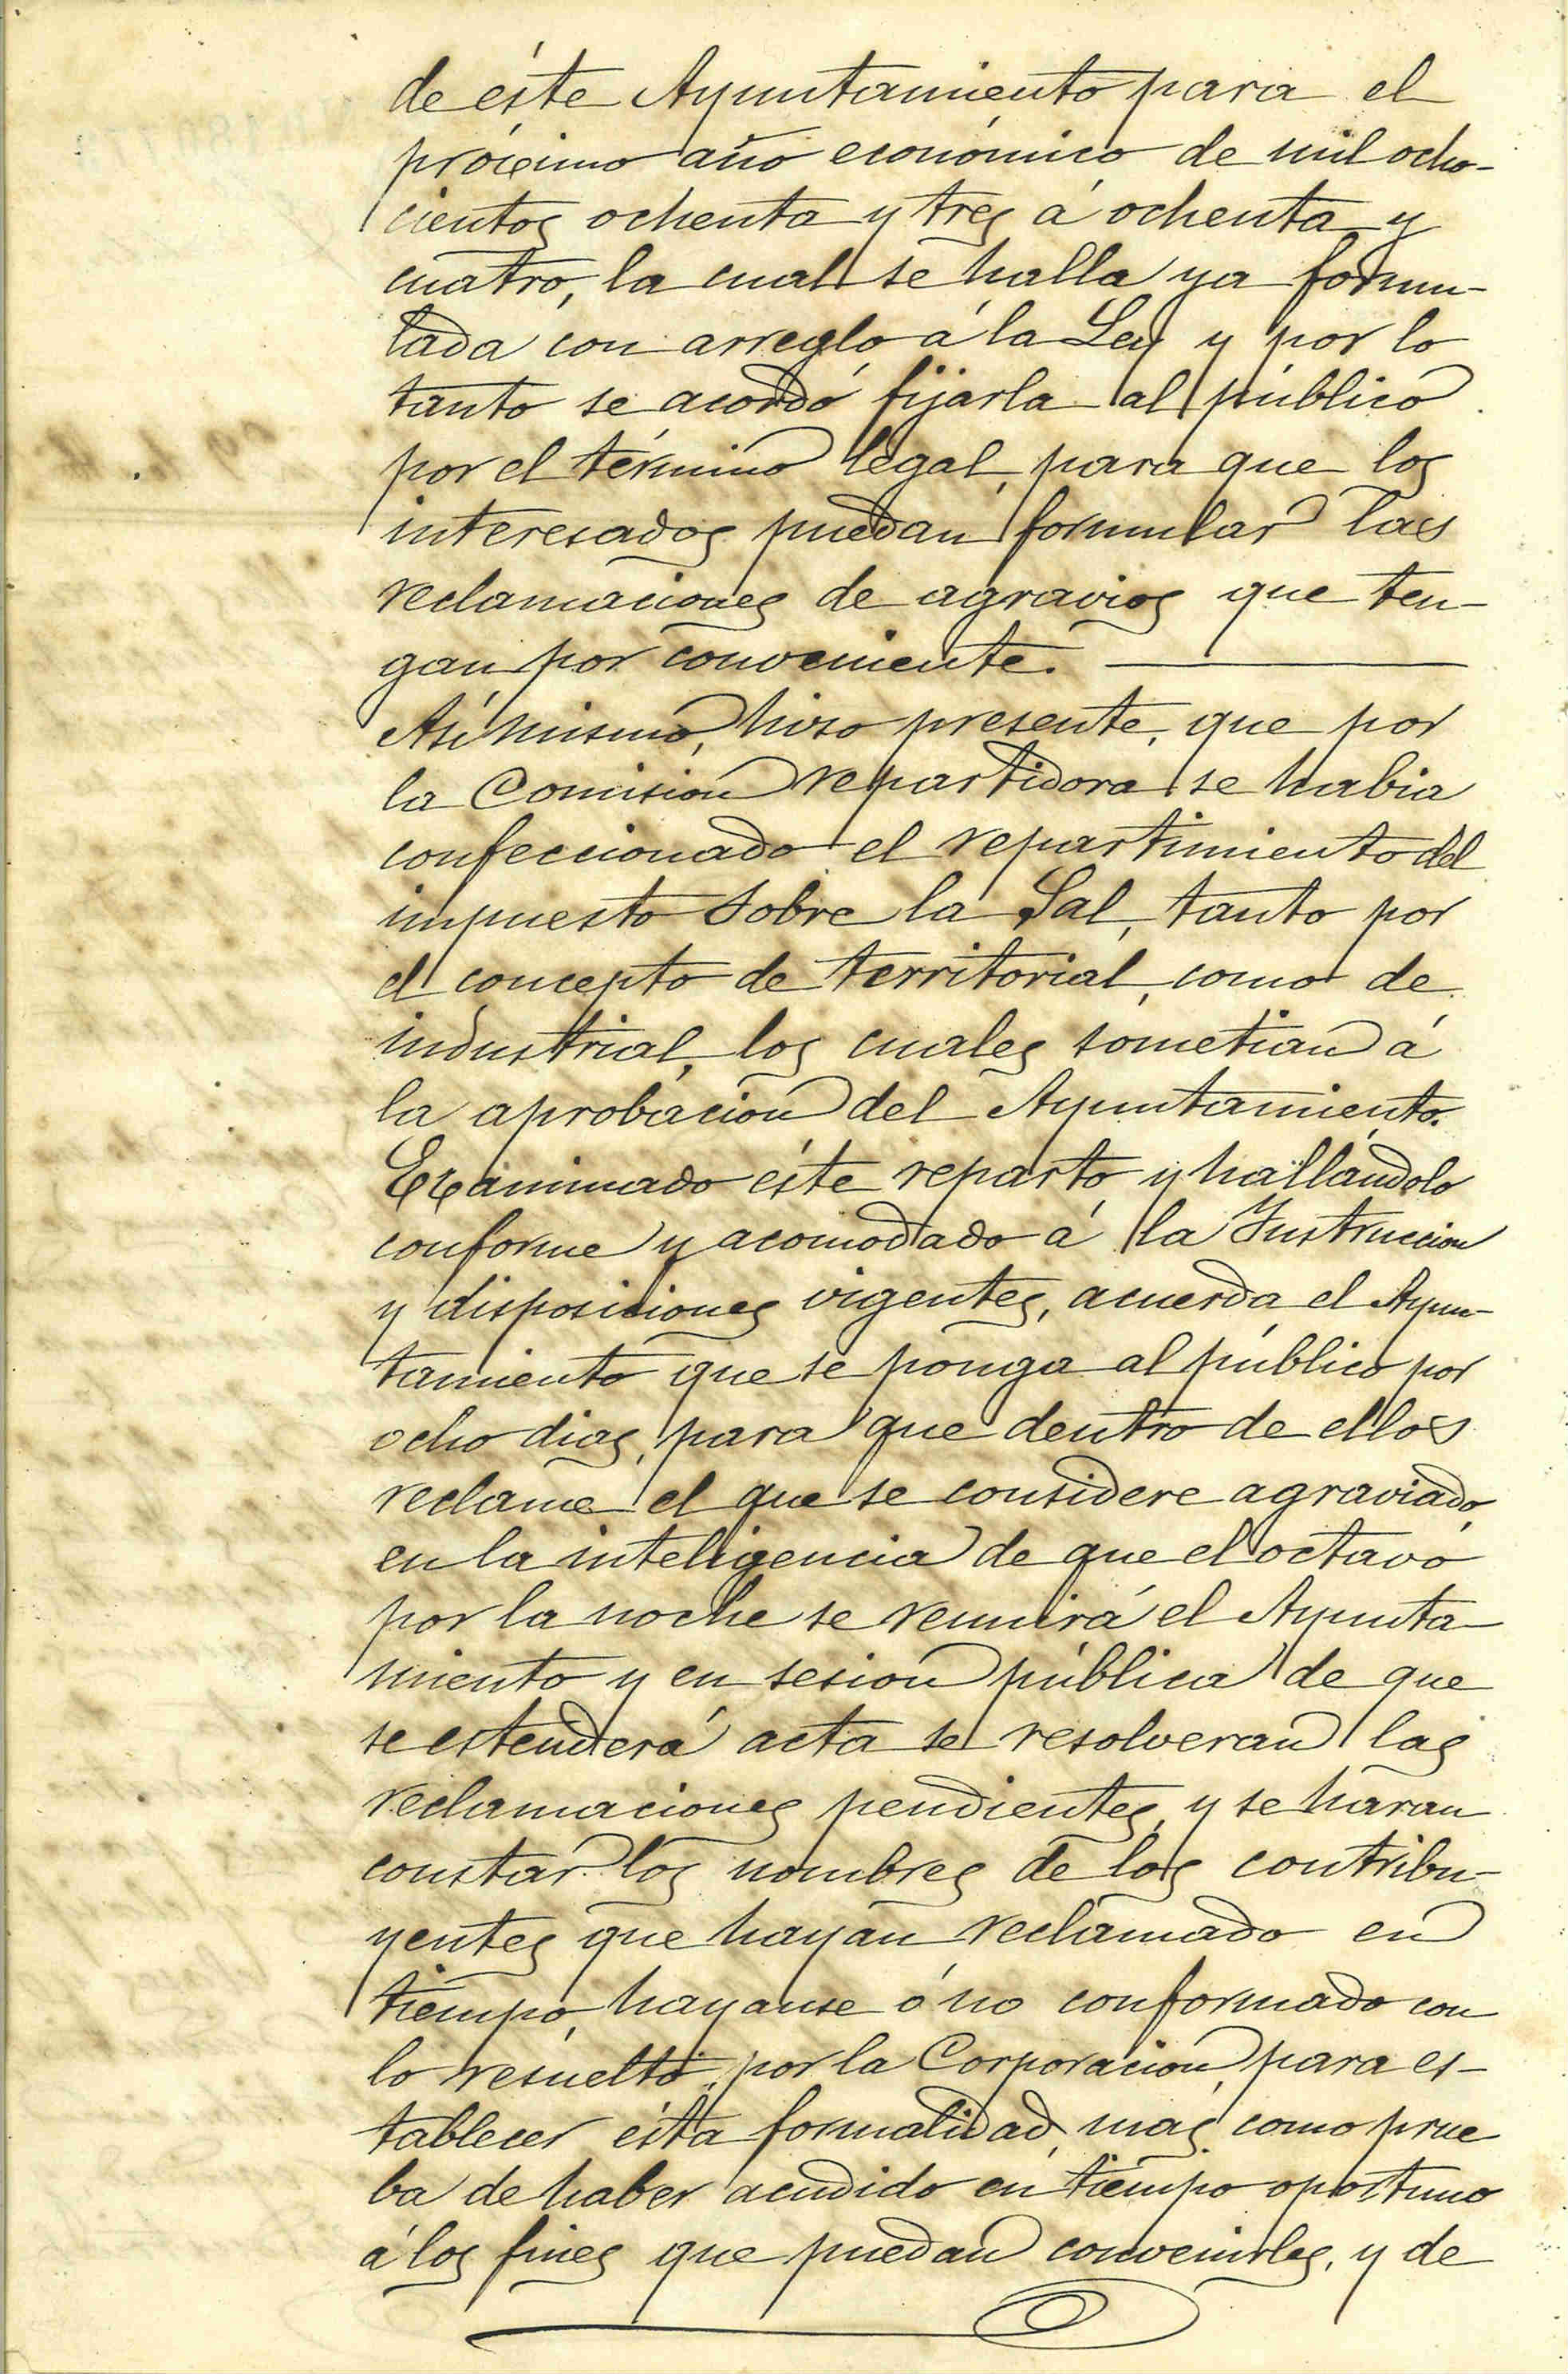 de éste Ayuntamiento para el
próximo año económico de mil ocho-
cientos ochenta y tres á ochenta y
cuatro, la cual se halla ya formu-
lada con arreglo á la Ley y por lo
tanto se acordó fijarla al público
por el término legal, para que los
interesados puedan formular las
reclamaciones de agravios que ten-
gan por conveniente.
Así mismo, hizo presente, que por
la Comisión repartidora se habia
confeccionado el repartimiento del
impuesto sobre la Sal, tanto por
el concepto de territorial, como de
industrial, los cuales sometian á
la aprobación del Ayuntamiento.
Examinado éste reparto y hallándolo
conforme y acomodado á la Instruccion
y disposiciones vigentes, acuerda el Ayun-
tamiento que se ponga al público por
ocho dias, para que dentro de ellos
reclame el que se considere agraviado,
en la inteligencia de que el octavo
por la noche se reunirá el Ayunta-
miento y en sesion pública de que
se estenderá acta se resolveran las
reclamaciones pendientes, y se haran
constar los nombres de los contribu-
yentes que hayan reclamado en
tiempo, hayanse ó no conformado con
lo resuelto, por la Corporacion, para es-
tablecer ésta formalidad, mas como prue
ba de haber acudido en tiempo oportuno
á los fines que puedan convenirles, y de